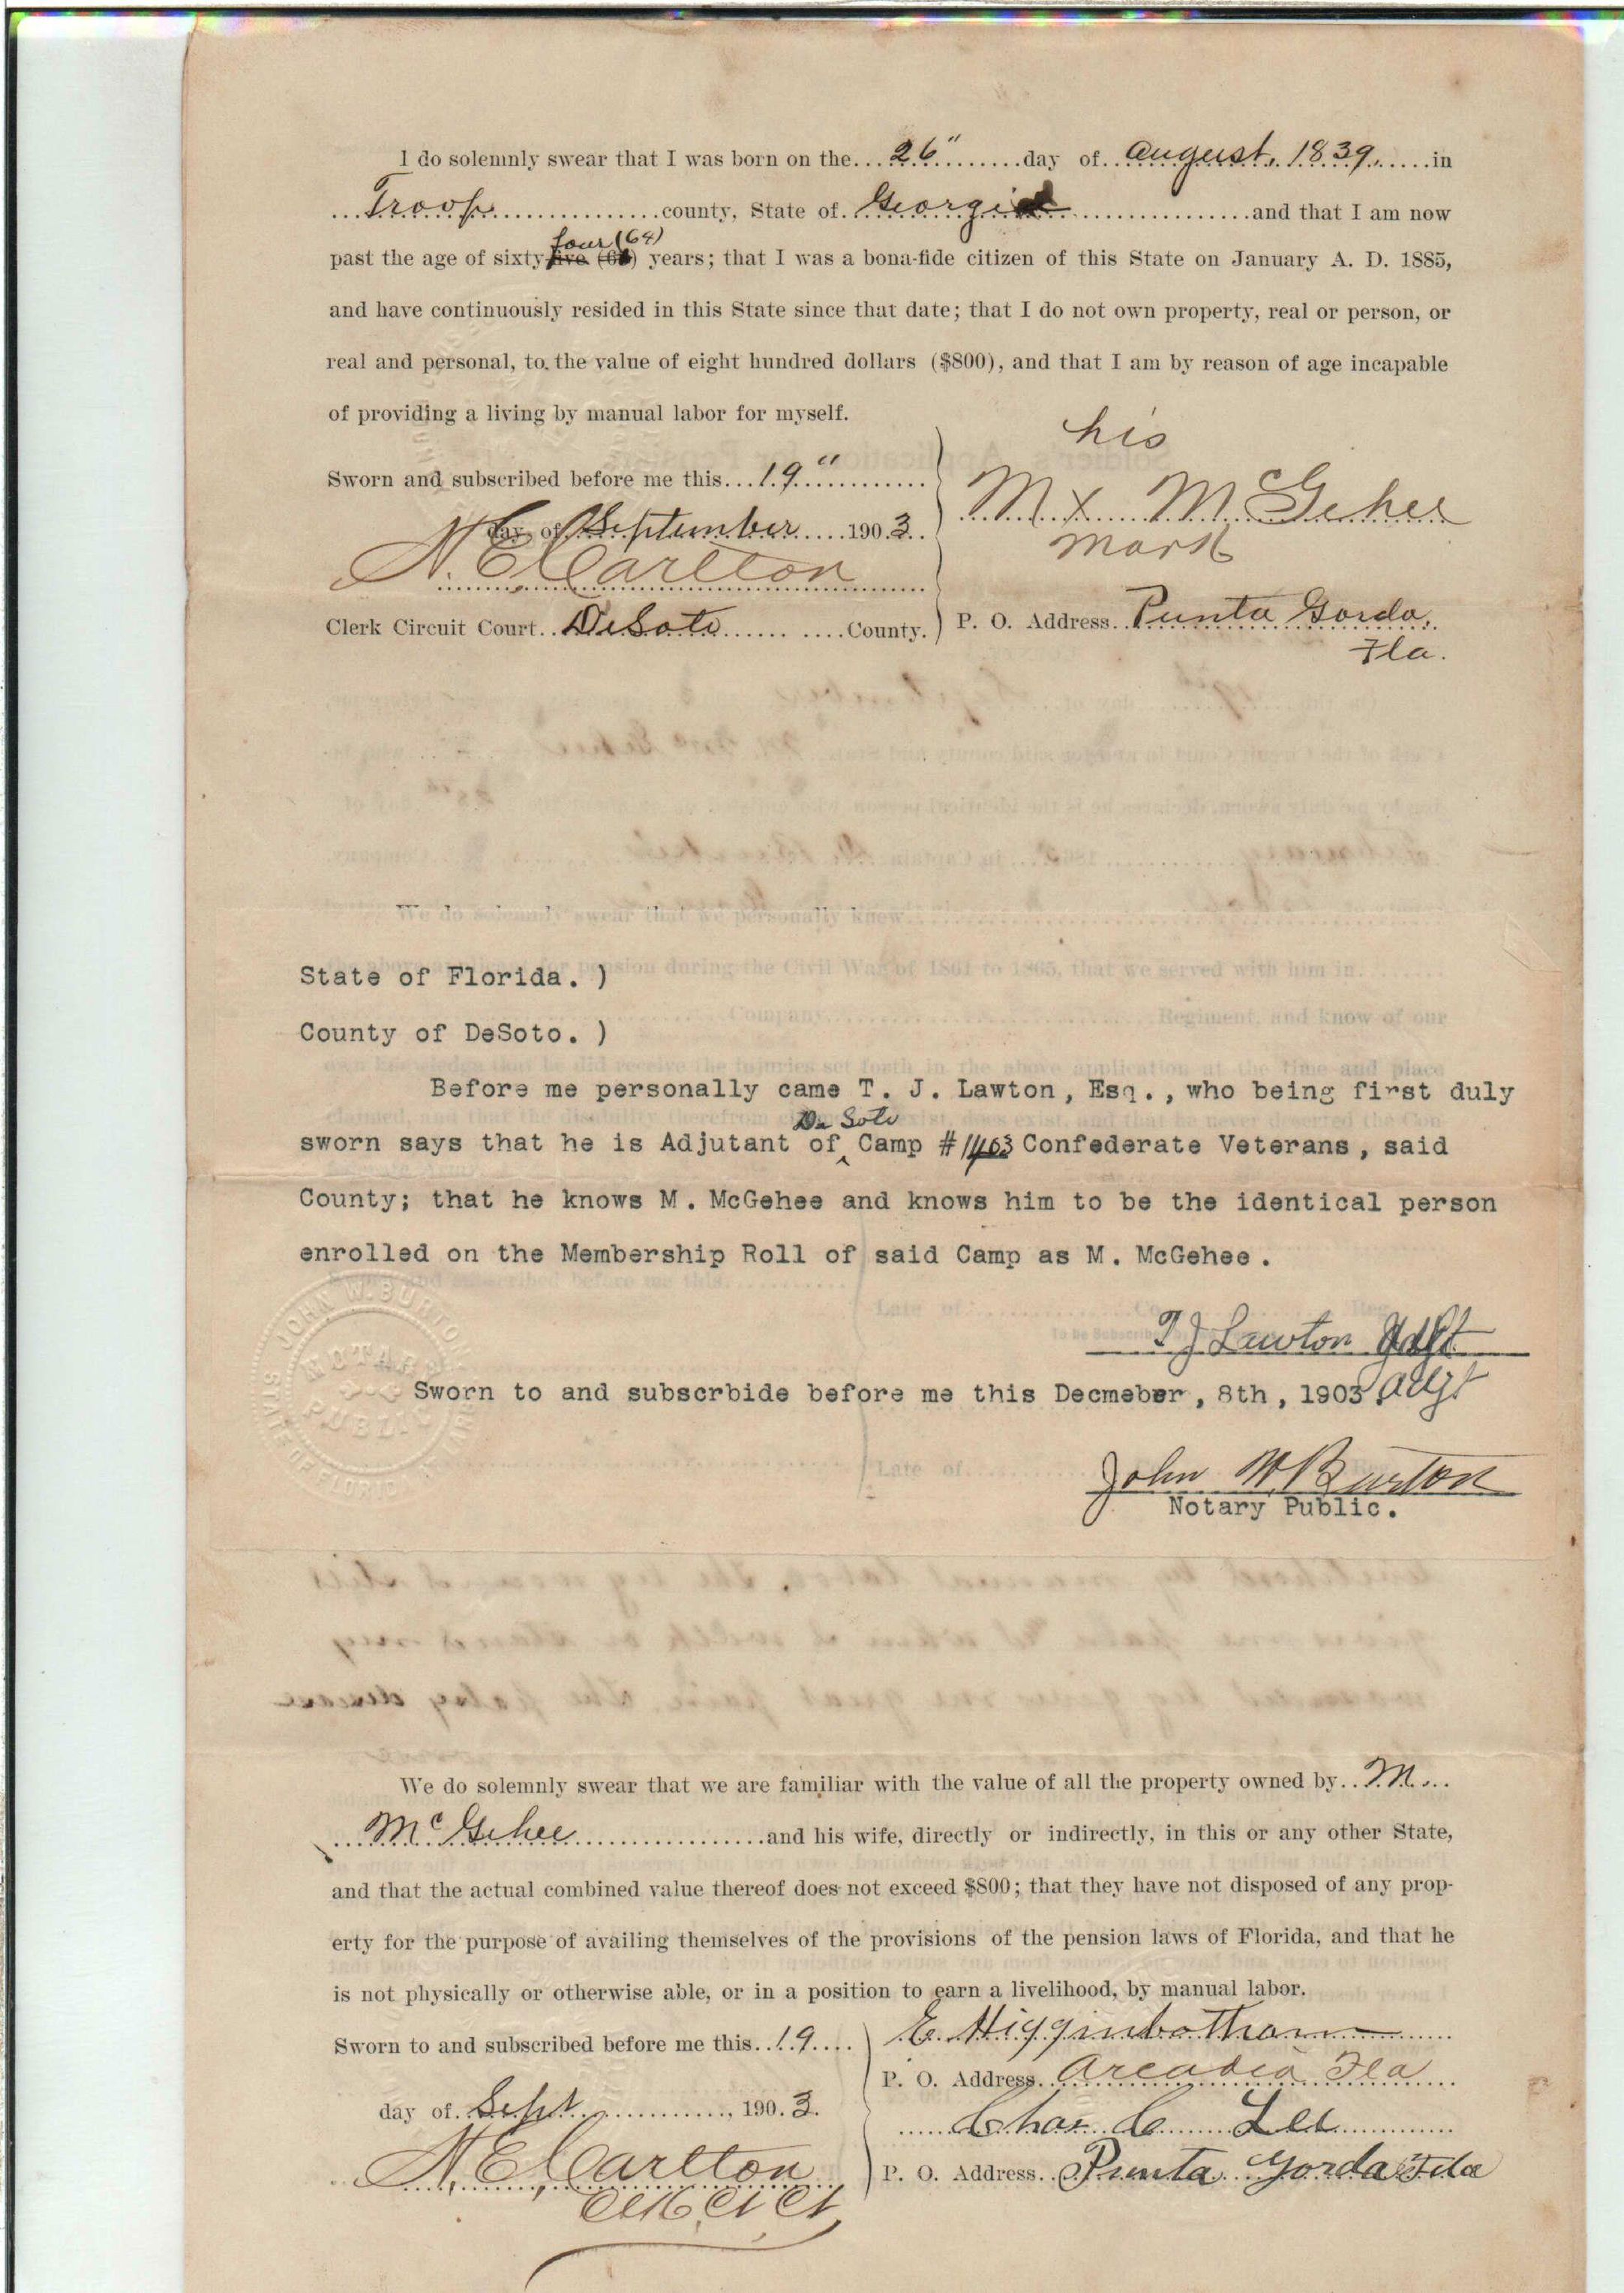 I do solemnly swear that I was born on the...26"........day of..August, 1839......in
...Troop................county, State of..Georgia................and that I am now
four (64)
past the age of sixty five (65) years; that I was a bona-fide citizen of this State on January A. D. 1885,
and have continuously resided in this State since that date; that I do not own property, real or person, or
real and personal, to the value of eight hundred dollars ($800), and that I am by reason of age incapable
of providing a living by manual labor for myself.
his
Sworn and subscribed before me this...19"...........
M x McGehee
day of September.....1903..
mark
N. E. Carlton
Clerk Circuit Court..DeSoto...........County.
P. O. Address..Punta Gorda,
Fla.
We do solemnly swear that we personally knew
pension during the Civil War of 1861 to 1865, that we served with him in
State of Florida. )
Company Regiment, and know of our
County of DeSoto. )
own knowledge that he did receive the injuries set forth in the above application at the time and place
Before me personally came T. J. Lawton, Esq., who being first duly
De Soto
sworn says that he is Adjutant of ^ Camp #1403 Confederate Veterans, said
County; that he knows M. McGehee and knows him to be the identical person
enrolled on the Membership Roll of said Camp as M. McGehee.
and subscribed before me this
Late of
T J Lawton Adjt
Sworn to and subscrbide before me this Decmeber, 8th, 1903. Adjt
JOHN W. BURTO
NOTARY
PUBLIC
STATE OF FLORID
Late of
John W. Burton
Notary Public.
We do solemnly swear that we are familiar with the value of all the property owned by..M...
...McGehee..................and his wife, directly or indirectly, in this or any other State,
and that the actual combined value thereof does not exceed $800; that they have not disposed of any prop-
erty for the purpose of availing themselves of the provisions of the pension laws of Florida, and that he
is not physically or otherwise able, or in a position to earn a livelihood, by manual labor.
Sworn to and subscribed before me this..19....
E. Higginbotham
P. O. Address..Arcadia Fla
day of..Sept.............., 1903.
Chas C Lee
N. E. Carlton
P. O. Address..Punta Gorda Fla
Clk Ct Ct